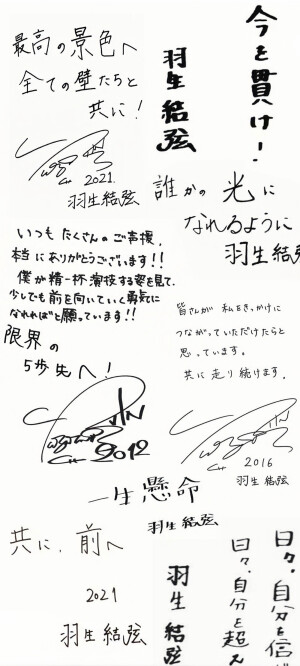 最高の景色へ
全ての壁たちと
共に!
2021.
羽生結弦
今を貫け!
羽生結弦
誰かの光に
なれるように
羽生結弦
いつもたくさんのご声援、
本当にありがとうございます!!
僕が精一杯演技する姿を見て、
少しでも前を向いていく勇気に
なれればと願っています!!
限界の
5歩先へ!
2012
皆さんが私をきっかけに
つながっていただけたらと
思っています。
共に走り続けます。
2016
羽生結弦
一生懸命
羽生結弦
共に、前へ
2021
羽生結弦
羽生結弦
日々、自分を超え
日々、自分を信